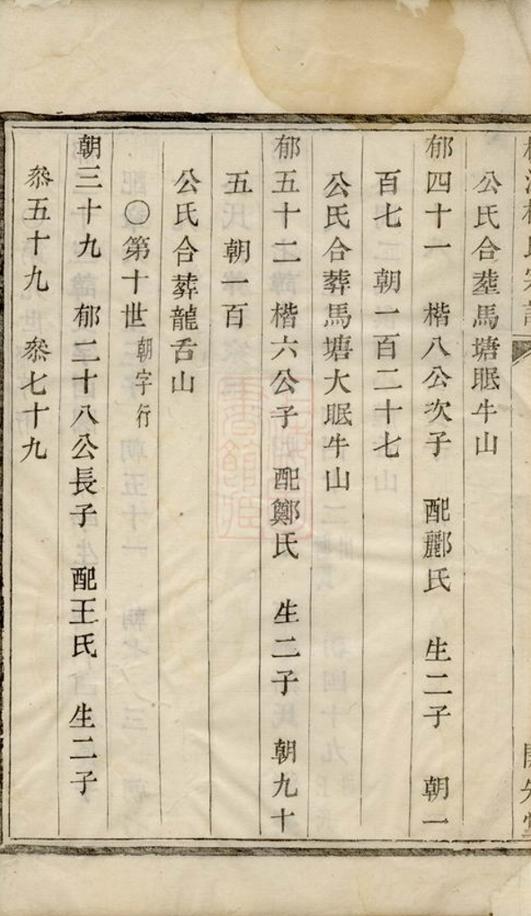 公氏合塟馬塘眠牛山
郁四十一 楷八公次子 配酈氏 生二子 朝一
百七 朝一百二十七
公氏合葬馬塘大眠牛山
郁五十二 楷六公子 配鄭氏 生二子 朝九十
五 朝一百
公氏合葬龍舌山
〇第十世 朝字行
朝三十九 郁二十八公長子 配王氏 生二子
叅五十九 叅七十九